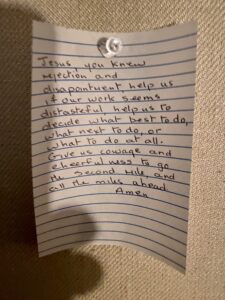 Jesus, you knew
rejection and
disapointment, help us
if our work seems
distasteful help us to
decide what best to do,
what next to do, or
what to do at all.
Give us courage and
cheerfulness to go
the second mile, and
all the miles ahead
Amen